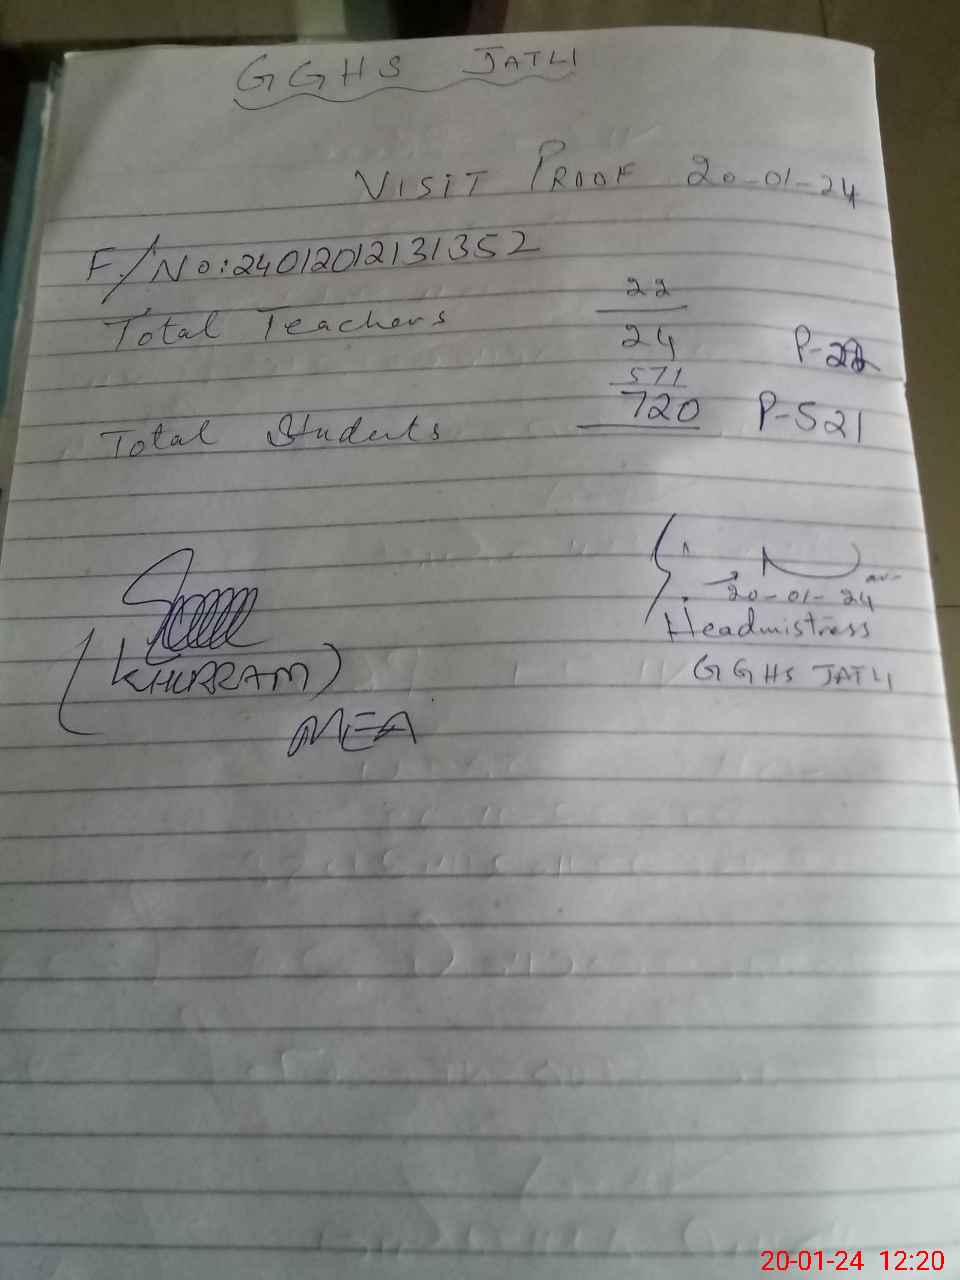 GGHS JATLI
VISIT PROOF 20-01-24
F/No:2401201213​1352
22
Total Teachers 24 P-22
571
Total Students 720 P-521
20-01-24
(KHURRAM) Headmistress
GGHS JATLI
MEA
20-01-24 12:20